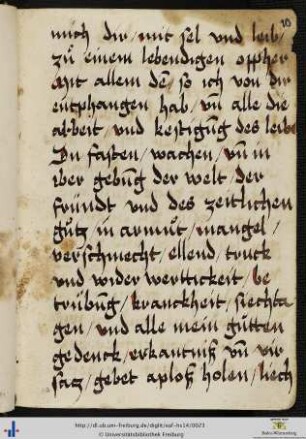 10
mich dir / mit sel vnd leib /
zu̇ einem lebendigen oppher
Mit allem dē / so ich von dir
entphangen hab / vn̄ alle die
arbeit / vnd kestigūg des leibs
In fasten / wachen / vn̄ in
vber gebūg der welt der
fründt vnd des zeitlichen
gu̇tz in armu̇t / mangel /
verschmecht / ellend / truck
vnd wider werttickeit / be
trübūg / kranckheit / siechta
gen / vnd alle mein gütten
gedenck / erkantniß vn̄ vir
satz / gebet aplosz holen / liech
http://dl.ub.uni-freiburg.de/diglit/sol-hs14/0023
© Universitätsbibliothek Freiburg
Baden-Württemberg